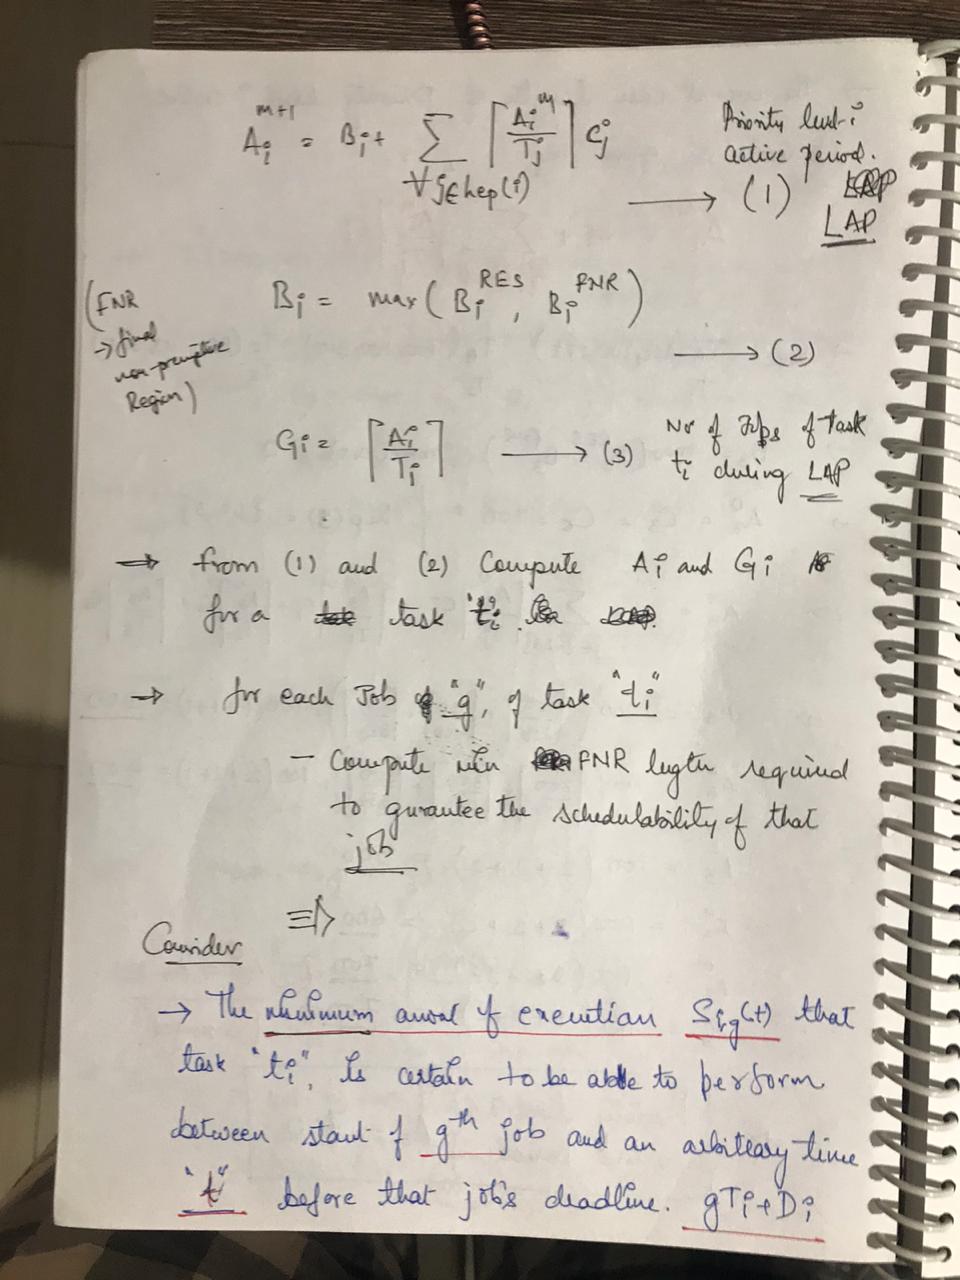 A_i^{m+1} = B_i + Σ_{∀j∈hep(i)} ⌈A_i^m / T_j⌉ C_j
Priority level-i
active period.
→ (1)
LAP
(FNR
→ final
non-premptive
Region)
B_i = max(B_i^{RES}, B_i^{FNR})
→ (2)
G_i = ⌈A_i / T_i⌉ → (3)
No of Jobs of task
t_i during LAP
→ from (1) and (2) Compute A_i and G_i
for a task "t_i"
→ for each Job "g", of task "t_i"
- Compute min FNR length required
to gurantee the schedulability of that
job
⇒
Consider
→ The minimum amout of execution S_{i,g}(t) that
task "t_i", is certain to be able to perform
between start of g^{th} job and an arbitrary time
"t" before that job's deadline. gT_i+D_i